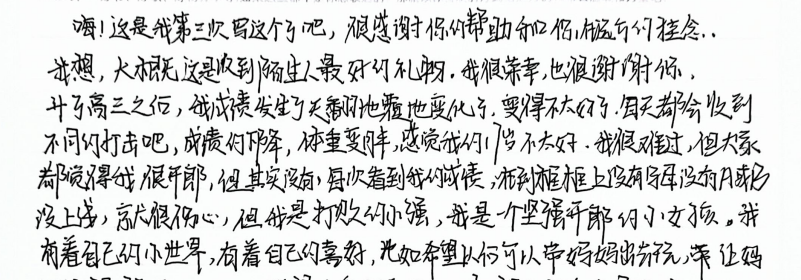 嗨!这是我第三次写这个了吧,很感谢你的帮助和你,的挂念..
我想,大概这是收到陌生人最好的礼物.我很荣幸,也很谢谢你.
升了高三之后,我成绩发生了天翻地覆地变化了.变得不太好了.每天都会收到
不同的打击吧,成绩的下降,体重变胖,感觉我的17岁不太好.我很难过,但大家
都觉得我很开郎,但其实没有,每次看到我的成绩,框框上没有没有
没上线,就很伤心,但我是打败的小强,我是一个坚强开郎的小女孩。我
有着自己的小世界,有着自己的喜好,比如希望以后可以带妈妈出去玩,让妈